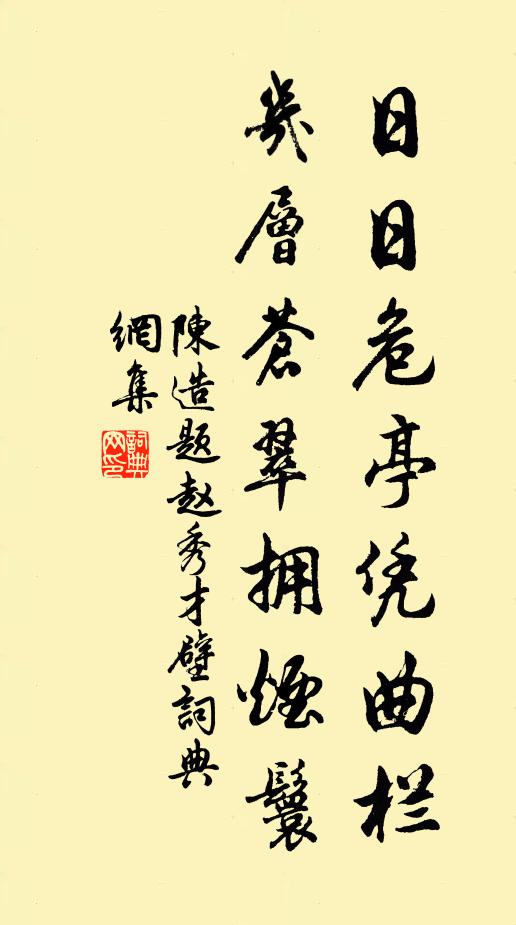 日日危亭凭曲栏
几層蒼翠拥烟鬟
陳造题赵秀才壁詞典
網集
詞典网印